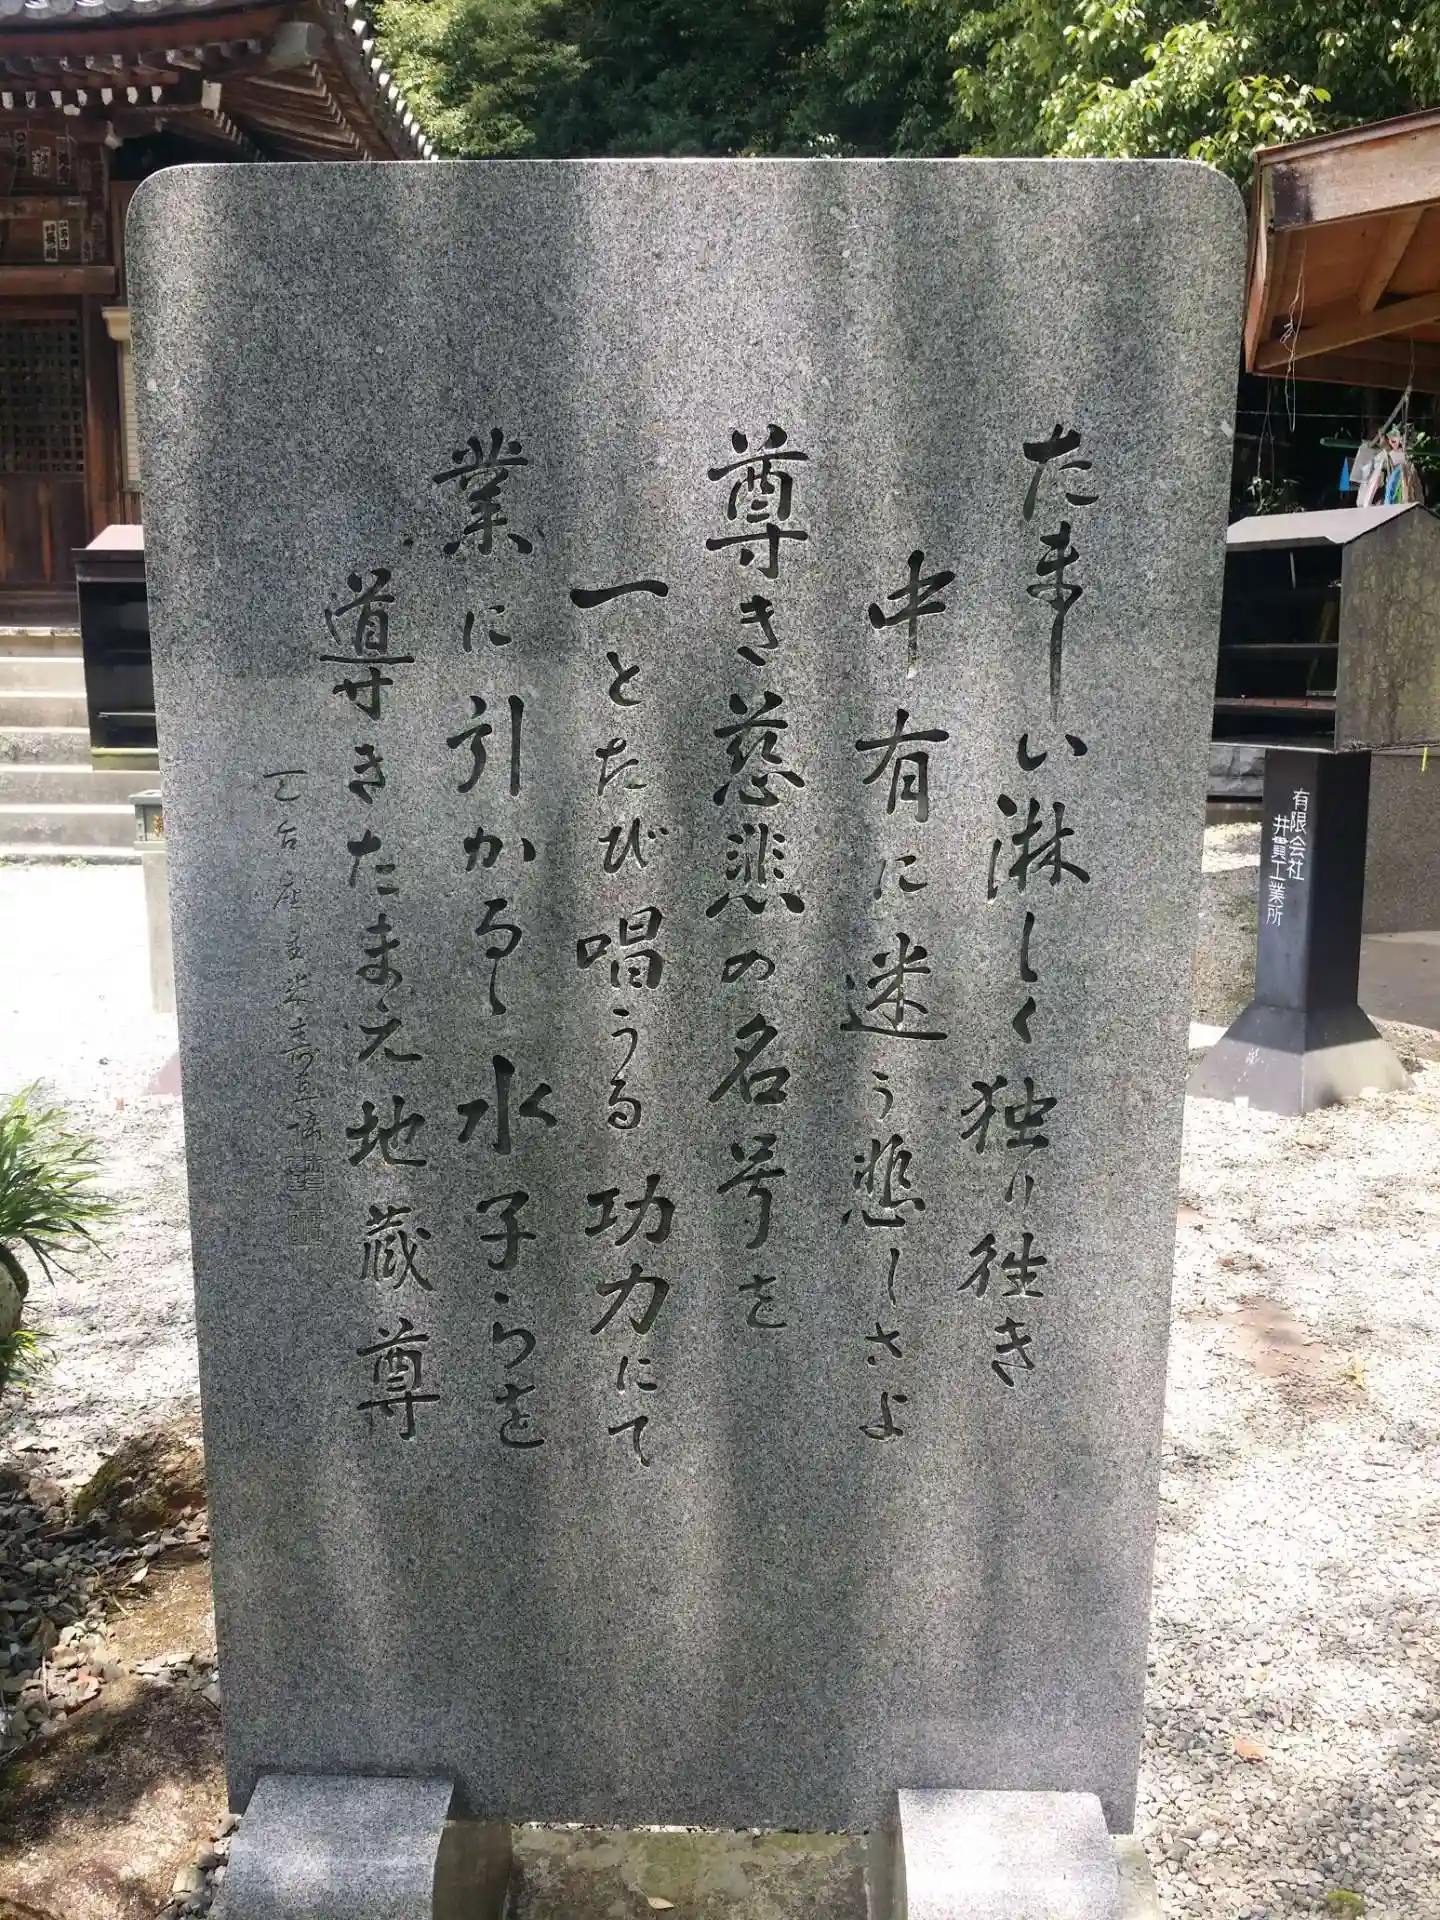 たましい淋しく独り往き
中有に迷う悲しさよ
尊き慈悲の名号を
一とたび唱うる功力にて
業に引かるゝ水子らを
導きたまえ地蔵尊
有限会社
井貫工業所